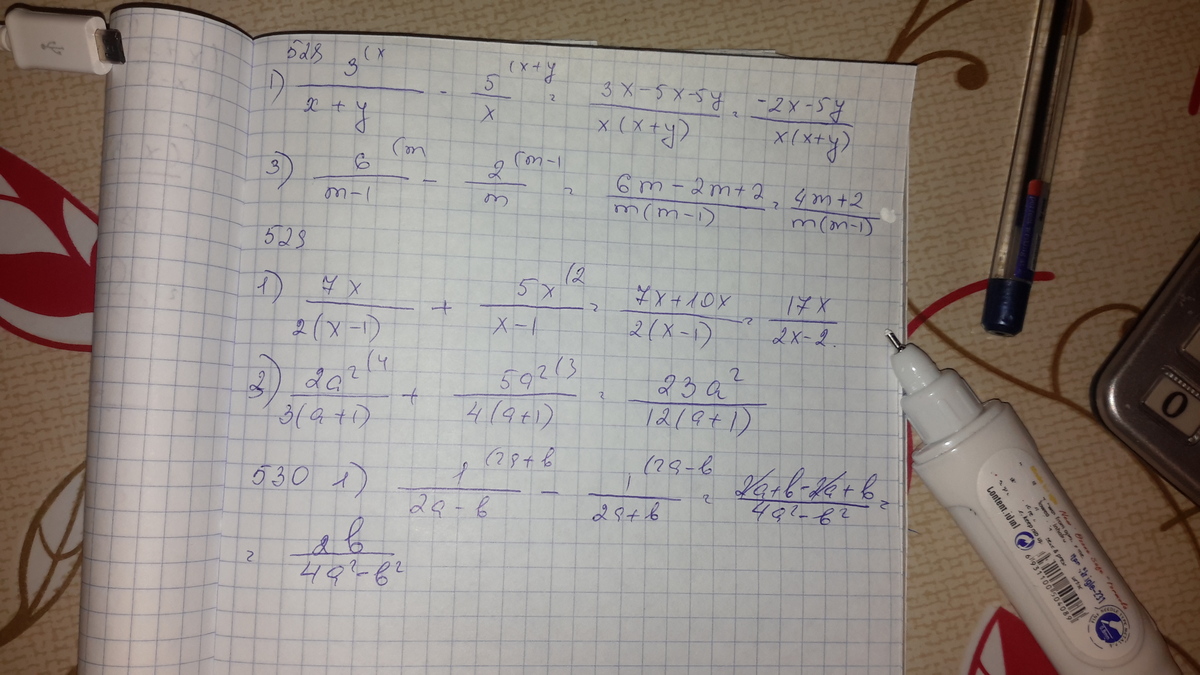 528
1) 3^(x / x + y - 5^(x+y / x = 3x-5x-5y / x(x+y) = -2x-5y / x(x+y)
3) 6^(m / m-1 - 2^(m-1 / m = 6m-2m+2 / m(m-1) = 4m+2 / m(m-1)
529
1) 7x / 2(x-1) + 5x^(2 / x-1 = 7x+10x / 2(x-1) = 17x / 2x-2.
2) 2a²^(4 / 3(a+1) + 5a²^(3 / 4(a+1) = 23a² / 12(a+1)
530 1) 1^(2a+b / 2a-b - 1^(2a-b / 2a+b = 2a+b-2a+b / 4a²-b² =
= 2b / 4a²-b²
0
Content.idml
6931100504089